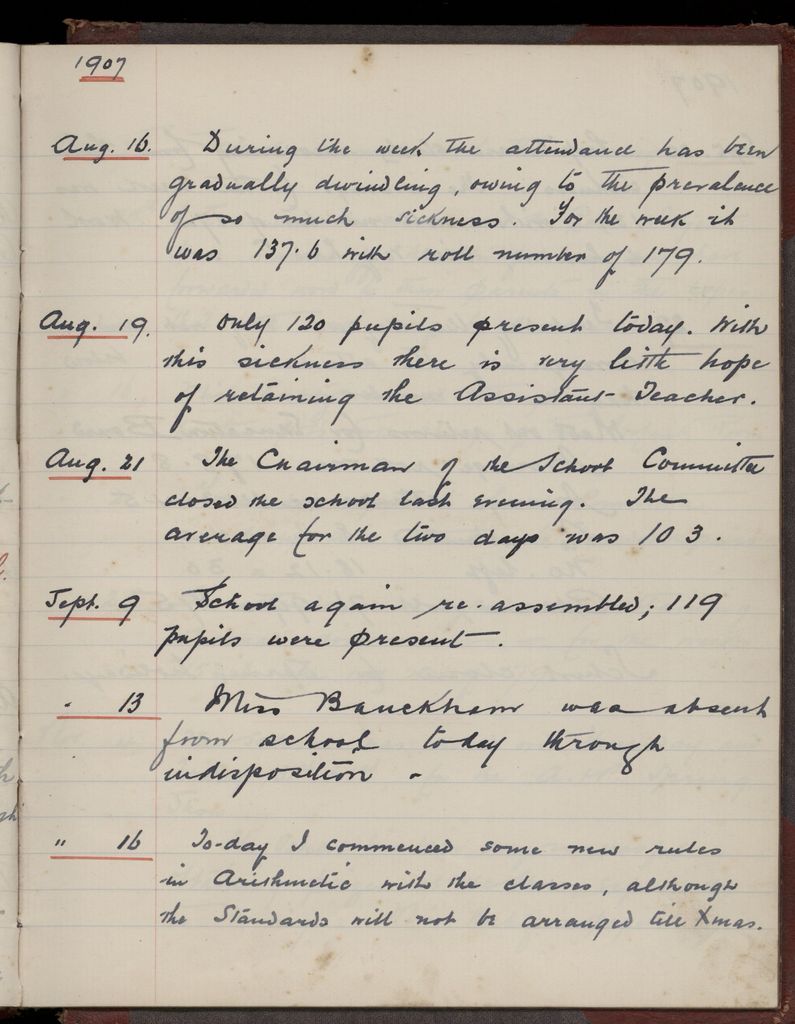 1907
Aug. 16. During the week the attendance has been
gradually dwindling, owing to the prevalence
of so much sickness. For the week it
was 137.6 with roll number of 179.
Aug. 19. Only 120 pupils present today. With
this sickness there is very little hope
of retaining the Assistant Teacher.
Aug. 21 The Chairman of the School Committee
closed the school last evening. The
average for the two days was 103.
Sept. 9 School again re-assembled; 119
pupils were present.
" 13 Miss Bauckham was absent
from school today through
indisposition -
" 16 To-day I commenced some new rules
in Arithmetic with the classes, although
the Standards will not be arranged till Xmas.